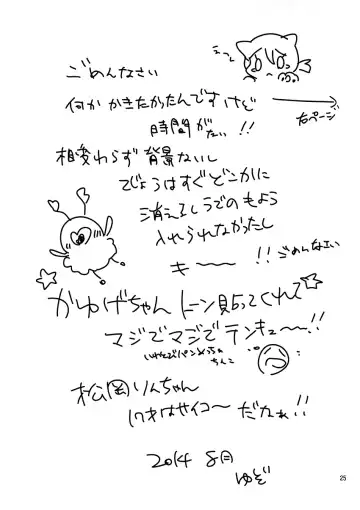 えっと
ごめんなさい
何か かきたかったんですけど
時間がない!!
右ページ
相変わらず 背景ないし
びょうはすぐどこかに
消えるしうでのもよう
入れられなかったし
キーー!! ごめんなさい
がゆげちゃん トーン貼ってくれて
マジでマジでテンキュー〜!!
松岡りんちゃん
17才はサイコ〜だなぁ!!
2014 8月
ゆど
25